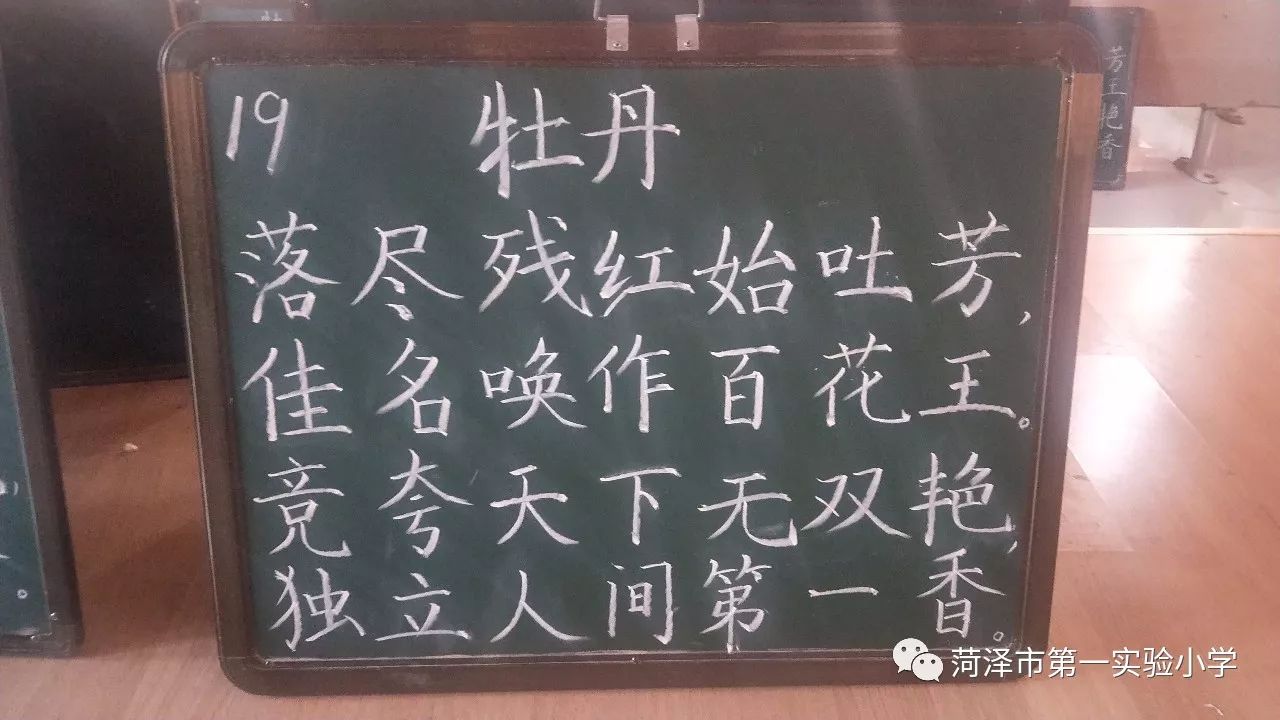 19 牡丹
落尽残红始吐芳,
佳名唤作百花王。
竞夸天下无双艳,
独立人间第一香。
芳王艳香
菏泽市第一实验小学